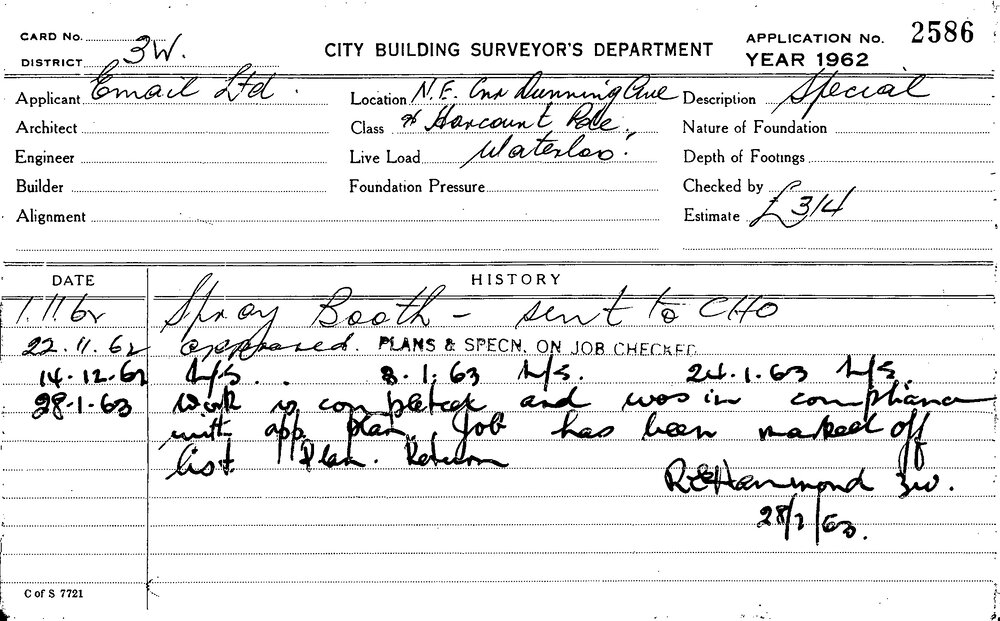 CARD No.
DISTRICT 3W.
CITY BUILDING SURVEYOR'S DEPARTMENT
APPLICATION No. 2586
YEAR 1962
Applicant Email Ltd.
Location N.E. Cnr Dunning Ave
Description Special
Architect
Class & Harcourt Pde.,
Nature of Foundation
Engineer
Live Load Waterloo.
Depth of Footings
Builder
Foundation Pressure
Checked by
Alignment
Estimate £314
DATE HISTORY
1.11.62 Spray Booth - sent to CHO
22.11.62 approved. PLANS & SPECN. ON JOB CHECKED
14.12.62 I/S. . 8.1.63 I/S. 24.1.63 I/S.
28.1.63 Work is completed and was in compliance
with app. plan. Job has been marked off
list Plan. Return
Hammond 3W.
28/1/63.
C of S 7721